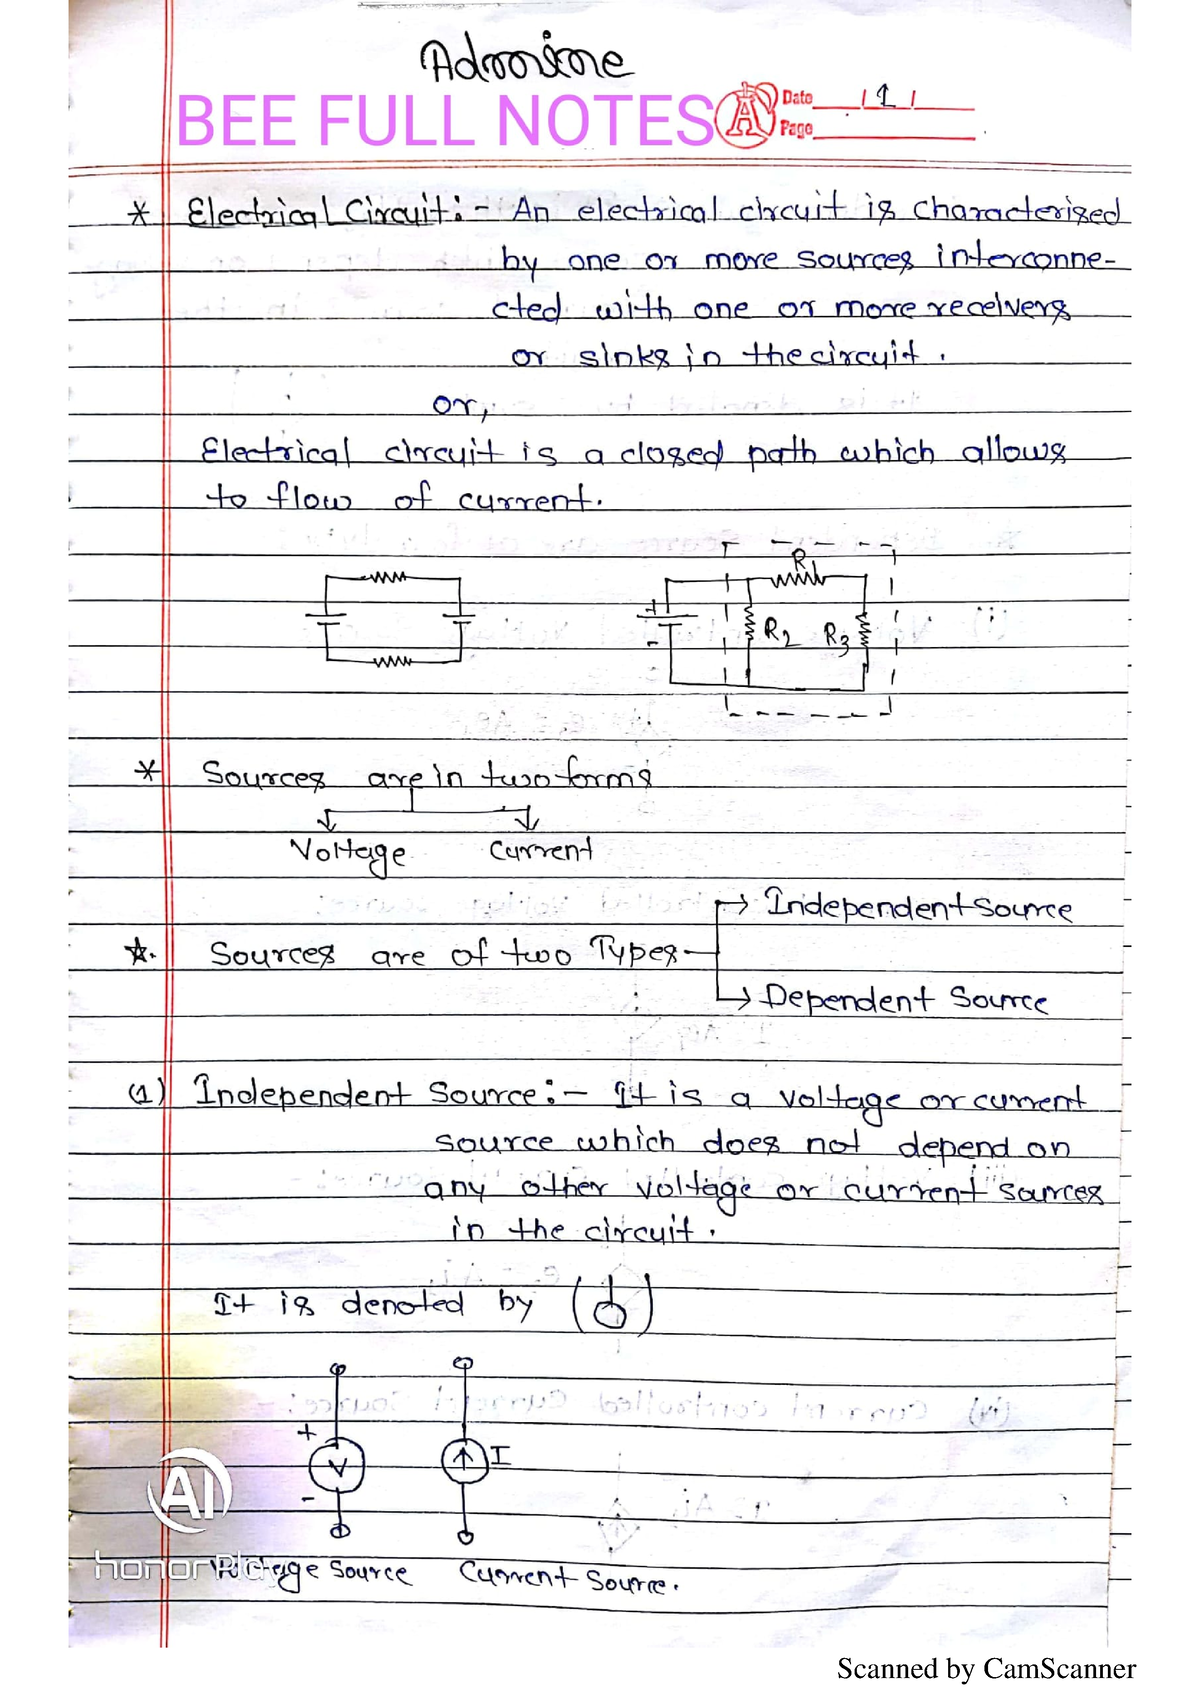 Admine
BEE FULL NOTES
A Date / 1 /
Page
* Electrical Circuit:- An electrical circuit is characterized
by one or more sources interconne-
cted with one or more receivers
or sinks in the circuit.
or,
Electrical circuit is a closed path which allows
to flow of current.
R1
+
-
R2 R3
* Sources are in two forms
Voltage Current
Independent Source
Sources are of two Types
Dependent Source
(1) Independent Source:- It is a voltage or current
source which does not depend on
any other voltage or current sources
in the circuit.
It is denoted by ( )
+
V
-
I
AI
honor
Voltage Source Current Source.
Scanned by CamScanner